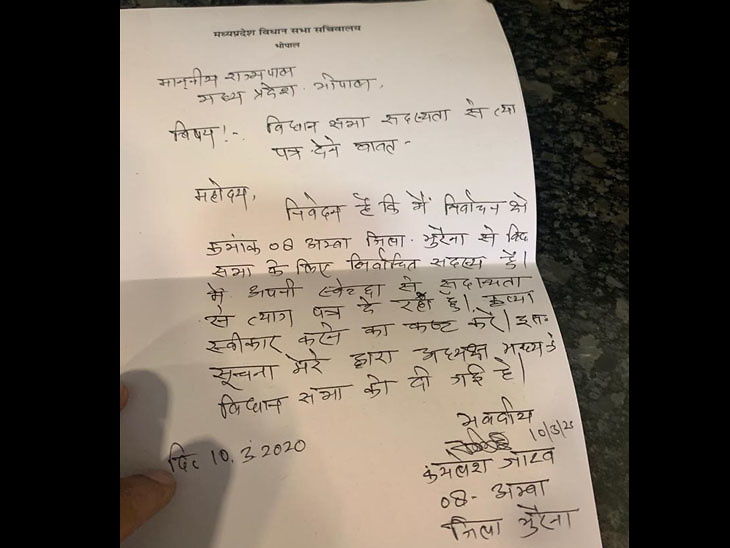 मध्यप्रदेश विधान सभा सचिवालय
भोपाल
माननीय राज्यपाल
मध्य प्रदेश. भोपाल,
विषय!-. विधान सभा सदस्यता से त्या
पत्र देने बाबत -
महोदय,
निवेदन है कि मैं निर्वाचन क्षे
क्रमांक 08 अम्बा जिला. मुरैना से विध
सभा के लिए निर्वाचित सदस्य हूँ।
मैं अपनी स्वेच्छा से सदस्यता
से त्याग पत्र दे रहा हूं। कृप्या
स्वीकार करने का कष्ट करें। इस
सूचना मेरे द्वारा अध्यक्ष
विधान सभा को दी गई है।
भवदीय
10/3/20
दि. 10.3.2020
कमलेश जाटव
08- अम्बा
जिला मुरैना